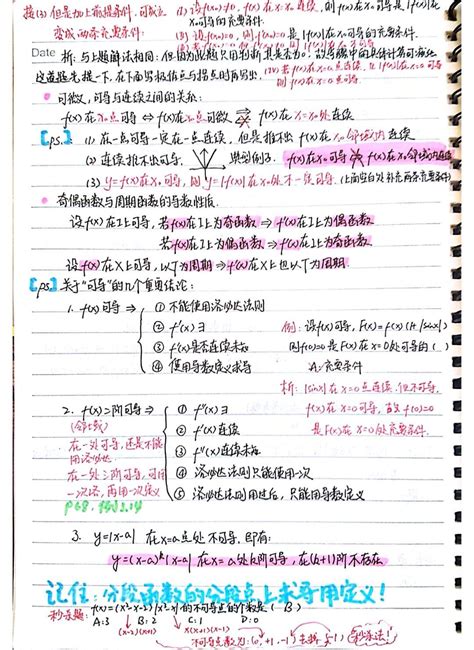 接(3) 但是加上前提条件,可成立
变成两条充要条件:
(1) 设f(x₀)≠0, f(x)在x=x₀连续, 则f(x)在x₀可导是|f(x)|在x₀可导的充要条件.
Date
析: 与上题解法相同
这道题先提一下, 在下面写极值点与拐点时再写出
可微, 可导与连续之间的关系:
f(x)在x₀点可导 ⇔ f(x)在x₀点可微 f(x)在x=x₀处连续
【ps.】 (1) 在一点可导一定在一点连续, 但是推不出 f(x)在x₀邻域内连续
(2) 连续推不出可导, 典型例子: f(x)在x₀可导 f(x)在x₀邻域内连续
(3) y=f(x)在x₀可导, 则 y=|f(x)|在x₀处不一定可导. (上面空白处补充两条充要条件)
奇偶函数与周期函数的导数性质.
设f(x)在I上可导, 若f(x)在I上为奇函数 ⇒ f'(x)在I上为偶函数
若f(x)在I上为偶函数 ⇒ f'(x)在I上为奇函数.
设f(x)在X上可导, 以T为周期 ⇒ f'(x)在X上也以T为周期.
【ps】 关于“可导”的几个重要结论:
1. f(x)可导 ⇒
① 不能使用洛必达法则
② f'(x)∃
③ f'(x)是否连续未知
④ 使用导数定义求导
例: 设f(x)可导, F(x)=f(x)(1+|sinx|)
则f(0)=0是F(x)在x=0处可导的( )
A: 充要条件
析: |sinx|在x=0点连续, 但不可导.
f(x)在x=0可导, 故 f(0)=0
是F(x)在x=0处充要条件.
2. f(x)二阶可导 ⇒
(邻域)
在一处可导, 还是不能
用洛必达
在一处二阶可导, 可用
一次洛, 再用一次定义
① f''(x)∃
② f'(x)连续
③ f''(x)连续未知
④ 洛必达法则只能使用一次
⑤ 洛必达法则用过后, 只能用导数定义
3. y=|x-a| 在x=a点处不可导. 即有:
y=(x-a)ᵏ|x-a| 在x=a处k阶可导, 在(k+1)阶不存在
记住: 分段函数的分段点上求导用定义!
秒杀题: f(x)=(x²-x-2)|x³-x|的不可导点的个数是( B )
A: 3 B: 2 C: 1 D: 0
(x-2)(x+1) x(x+1)(x-1)